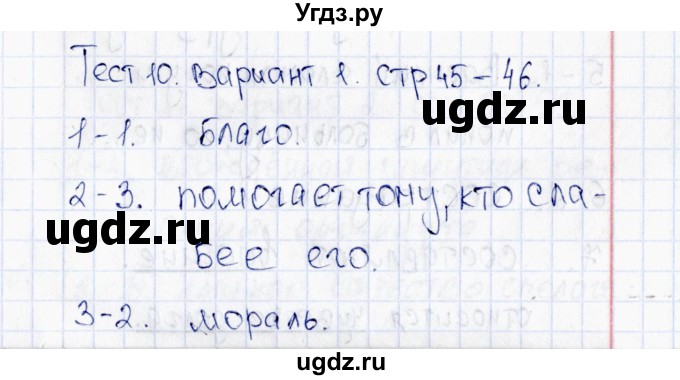 Угдз.ру
Тест 10. Вариант 1. стр 45-46.
ugdz.ru
1-1. Благо.
ugdz.ru
2-3. помогает тому, кто сла-
ugdz.ru
бее его.
ugdz.ru
3-2. мораль.
ugdz.ru